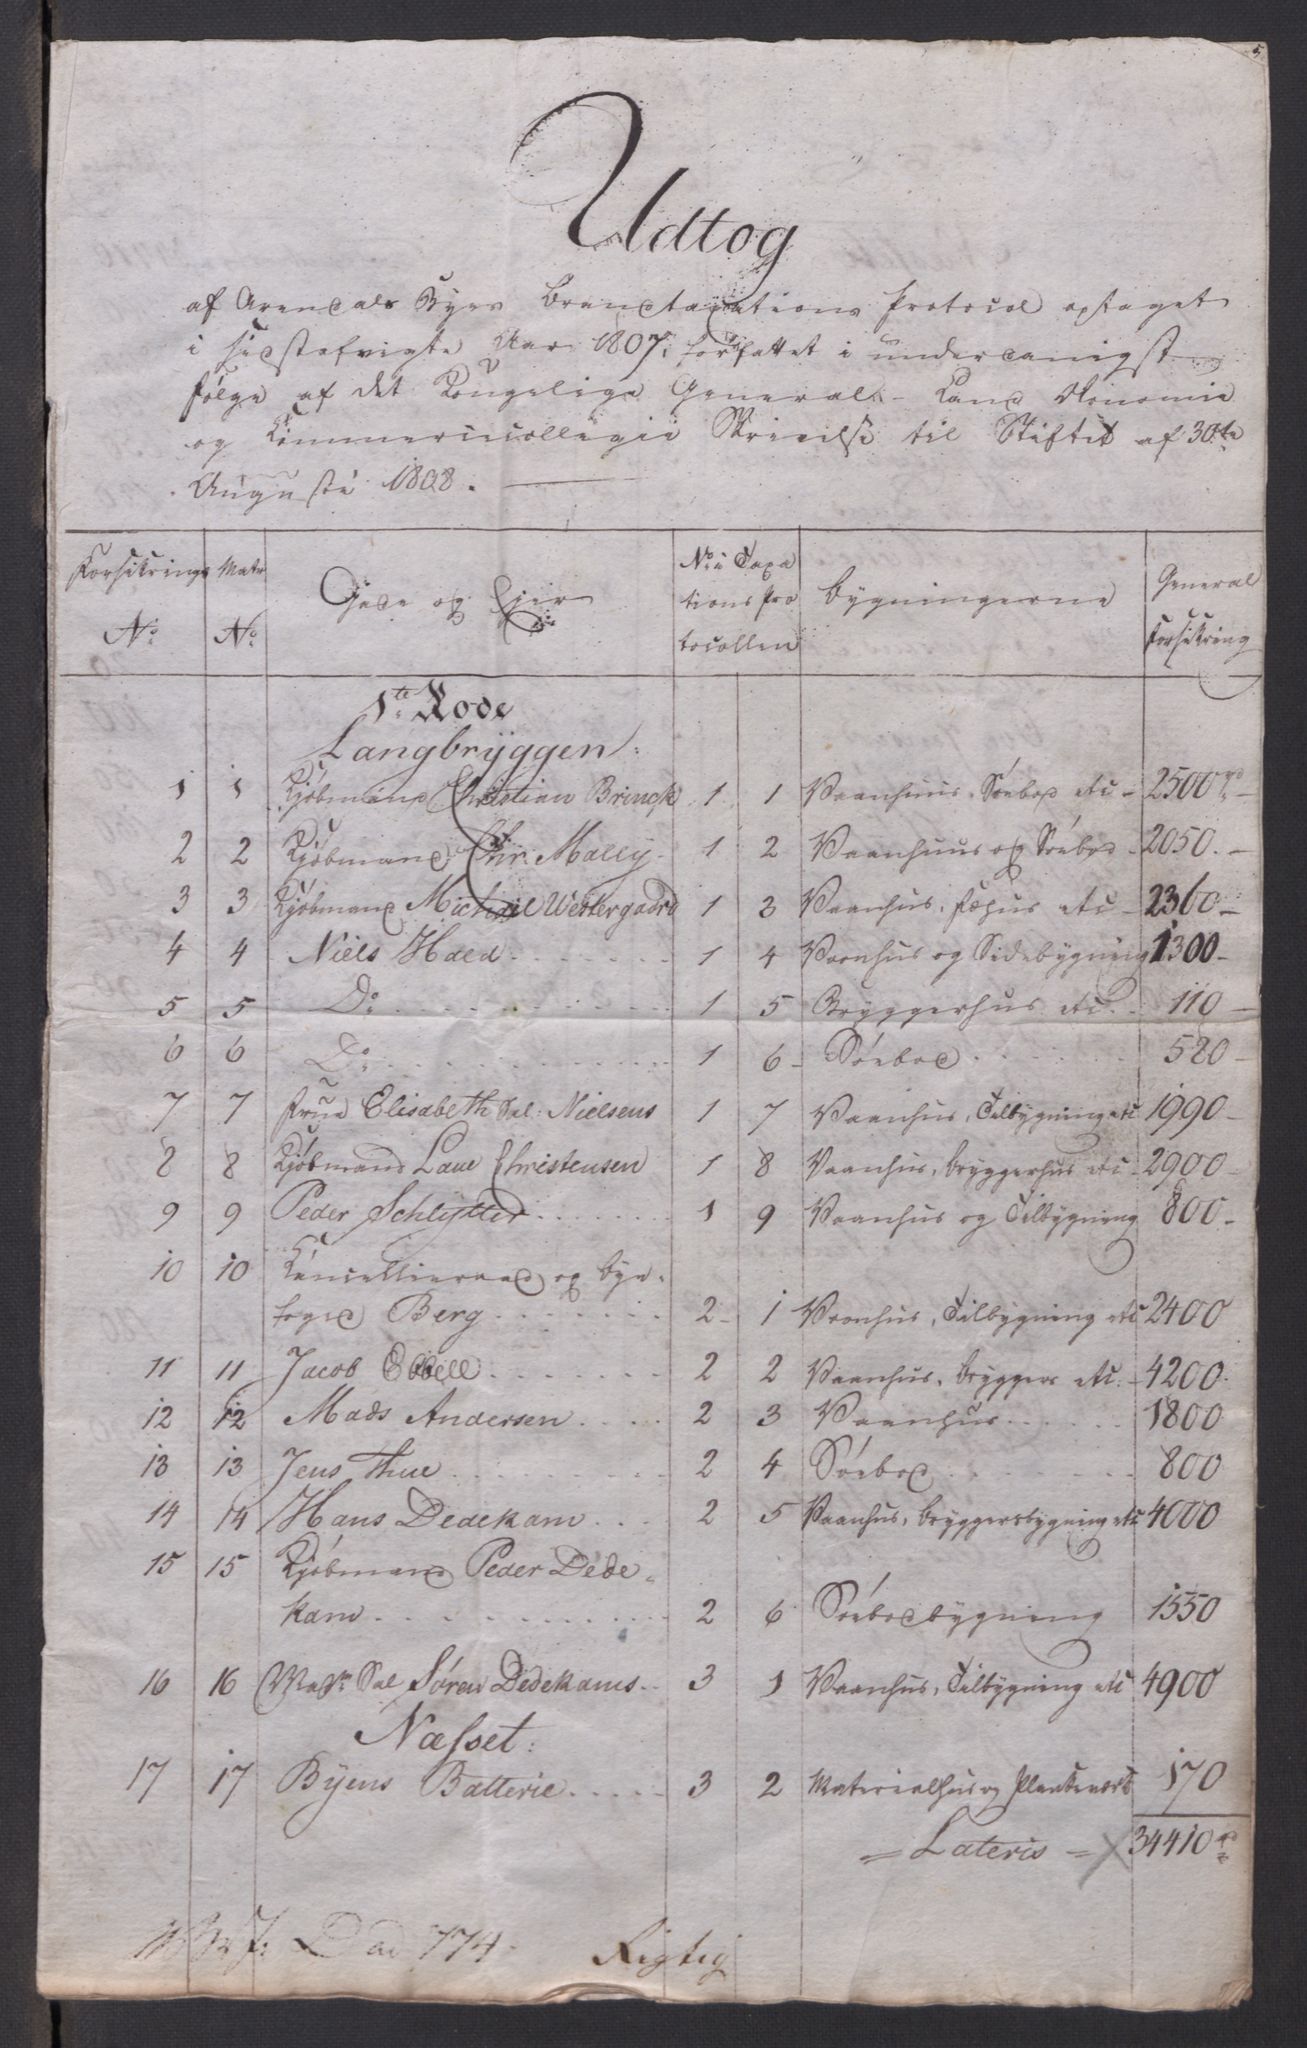 5
Udtog
af Arendals Byes Brandtaxations Protocol optaget
i sidstafvigte Aar 1807, forfattet i underdanigst
følge af det Kongelige General- Land Oeconomie
og Kommercecollegii Skrivelse til Stiftet af 30te
Augusti 1808.
Forsikrings No | Matr No | Gade og Eier | No i Taxationsprotocollen | Bygningerne | General Forsikring
1te Rode
Langbryggen:
1 1 Kjøbmand Christian Brinck 1 1 Vaanhuus, Søebod etc 2500 rd
2 2 Kjøbmand Chr. Mally 1 2 Vaanhuus og Søebod 2050
3 3 Kjøbmand Michael Westergaard 1 3 Vaanhus, Fæhus etc 2360
4 4 Niels Hald 1 4 Vaanhus og Sidebygning 1300
5 5 Do 1 5 Bryggerhus etc 110
6 6 Do 1 6 Søebod 580
7 7 Frue Elisabeth Sal: Nielsens 1 7 Vaanhus, Tilbygning etc 1990
8 8 Kjøbmand Laue Christensen 1 8 Vaanhus, bryggerhus etc 2900
9 9 Peder Schlytter 1 9 Vaanhus og Tilbygning 800
10 10 Cancellieraad og bye-
foged Berg 2 1 Vaanhus, Tilbygning etc 2400
11 11 Jacob Ebbell 2 2 Vaanhus, Bryggers etc. 4200
12 12 Mads Andersen 2 3 Vaanhus 1800
13 13 Jens Thue 2 4 Søebod 800
14 14 Hans Dedekam 2 5 Vaanhus, bryggersbygning etc 4000
15 15 Kjøbmand Peder Dede-
kam 2 6 Søebodbygning 1550
16 16 Mad: Sal Søren Dedekams 3 1 Vaanhus, Tilbygning etc 4900
Næsset:
17 17 Byens Batterie 3 2 Materialhus og Plankeværk 170
= Lateris = 34410 rd
774. Rigtig